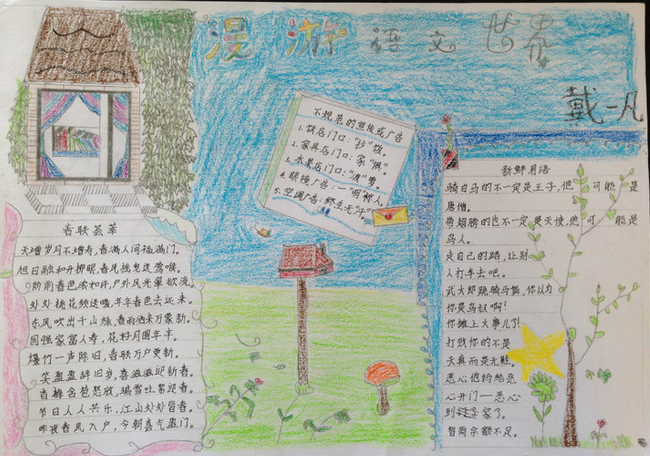 漫游语文世界
戴一凡
不规范的宣传或广告
1.饭店门口:"抄"饭。
2.家具店门口:家"俱"。
3.水果店门口:"波"萝。
4.眼镜广告:一"明"惊人。
5.空调广告:终生无"汗"。
春联荟萃
天增岁月人增寿,春满人间福满门。
旭日融和开柳眼,春风拂
阶前春色浓如许,户外风光翠欲流。
处处桃花频送暖,年年春色去还来。
东风吹出千山绿,春雨洒来万象新。
国强家富人寿,花好月圆年丰。
爆竹一声除旧,春联万户更新。
笑盈盈辞旧岁,喜滋滋迎新春。
春梅含苞怒放,瑞雪吐絮迎春。
节日人人共乐,江山处处留春。
昨夜春风入户,今朝喜气盈门。
新鲜用语
骑白马的不一定是王子,他可能是
唐僧。
带翅膀的也不一定是天使,他可能是
鸟人。
走自己的路,让别
人打车去吧。
武大郎跳骑马舞,你以为
你是鸟叔啊!
你摊上大事儿了!
打败你的不是
天真而是无鞋。
恶心他妈给恶
心开门—恶心
到家了。
智商余额不足。